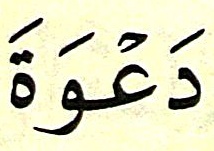 دَعْوَةَ